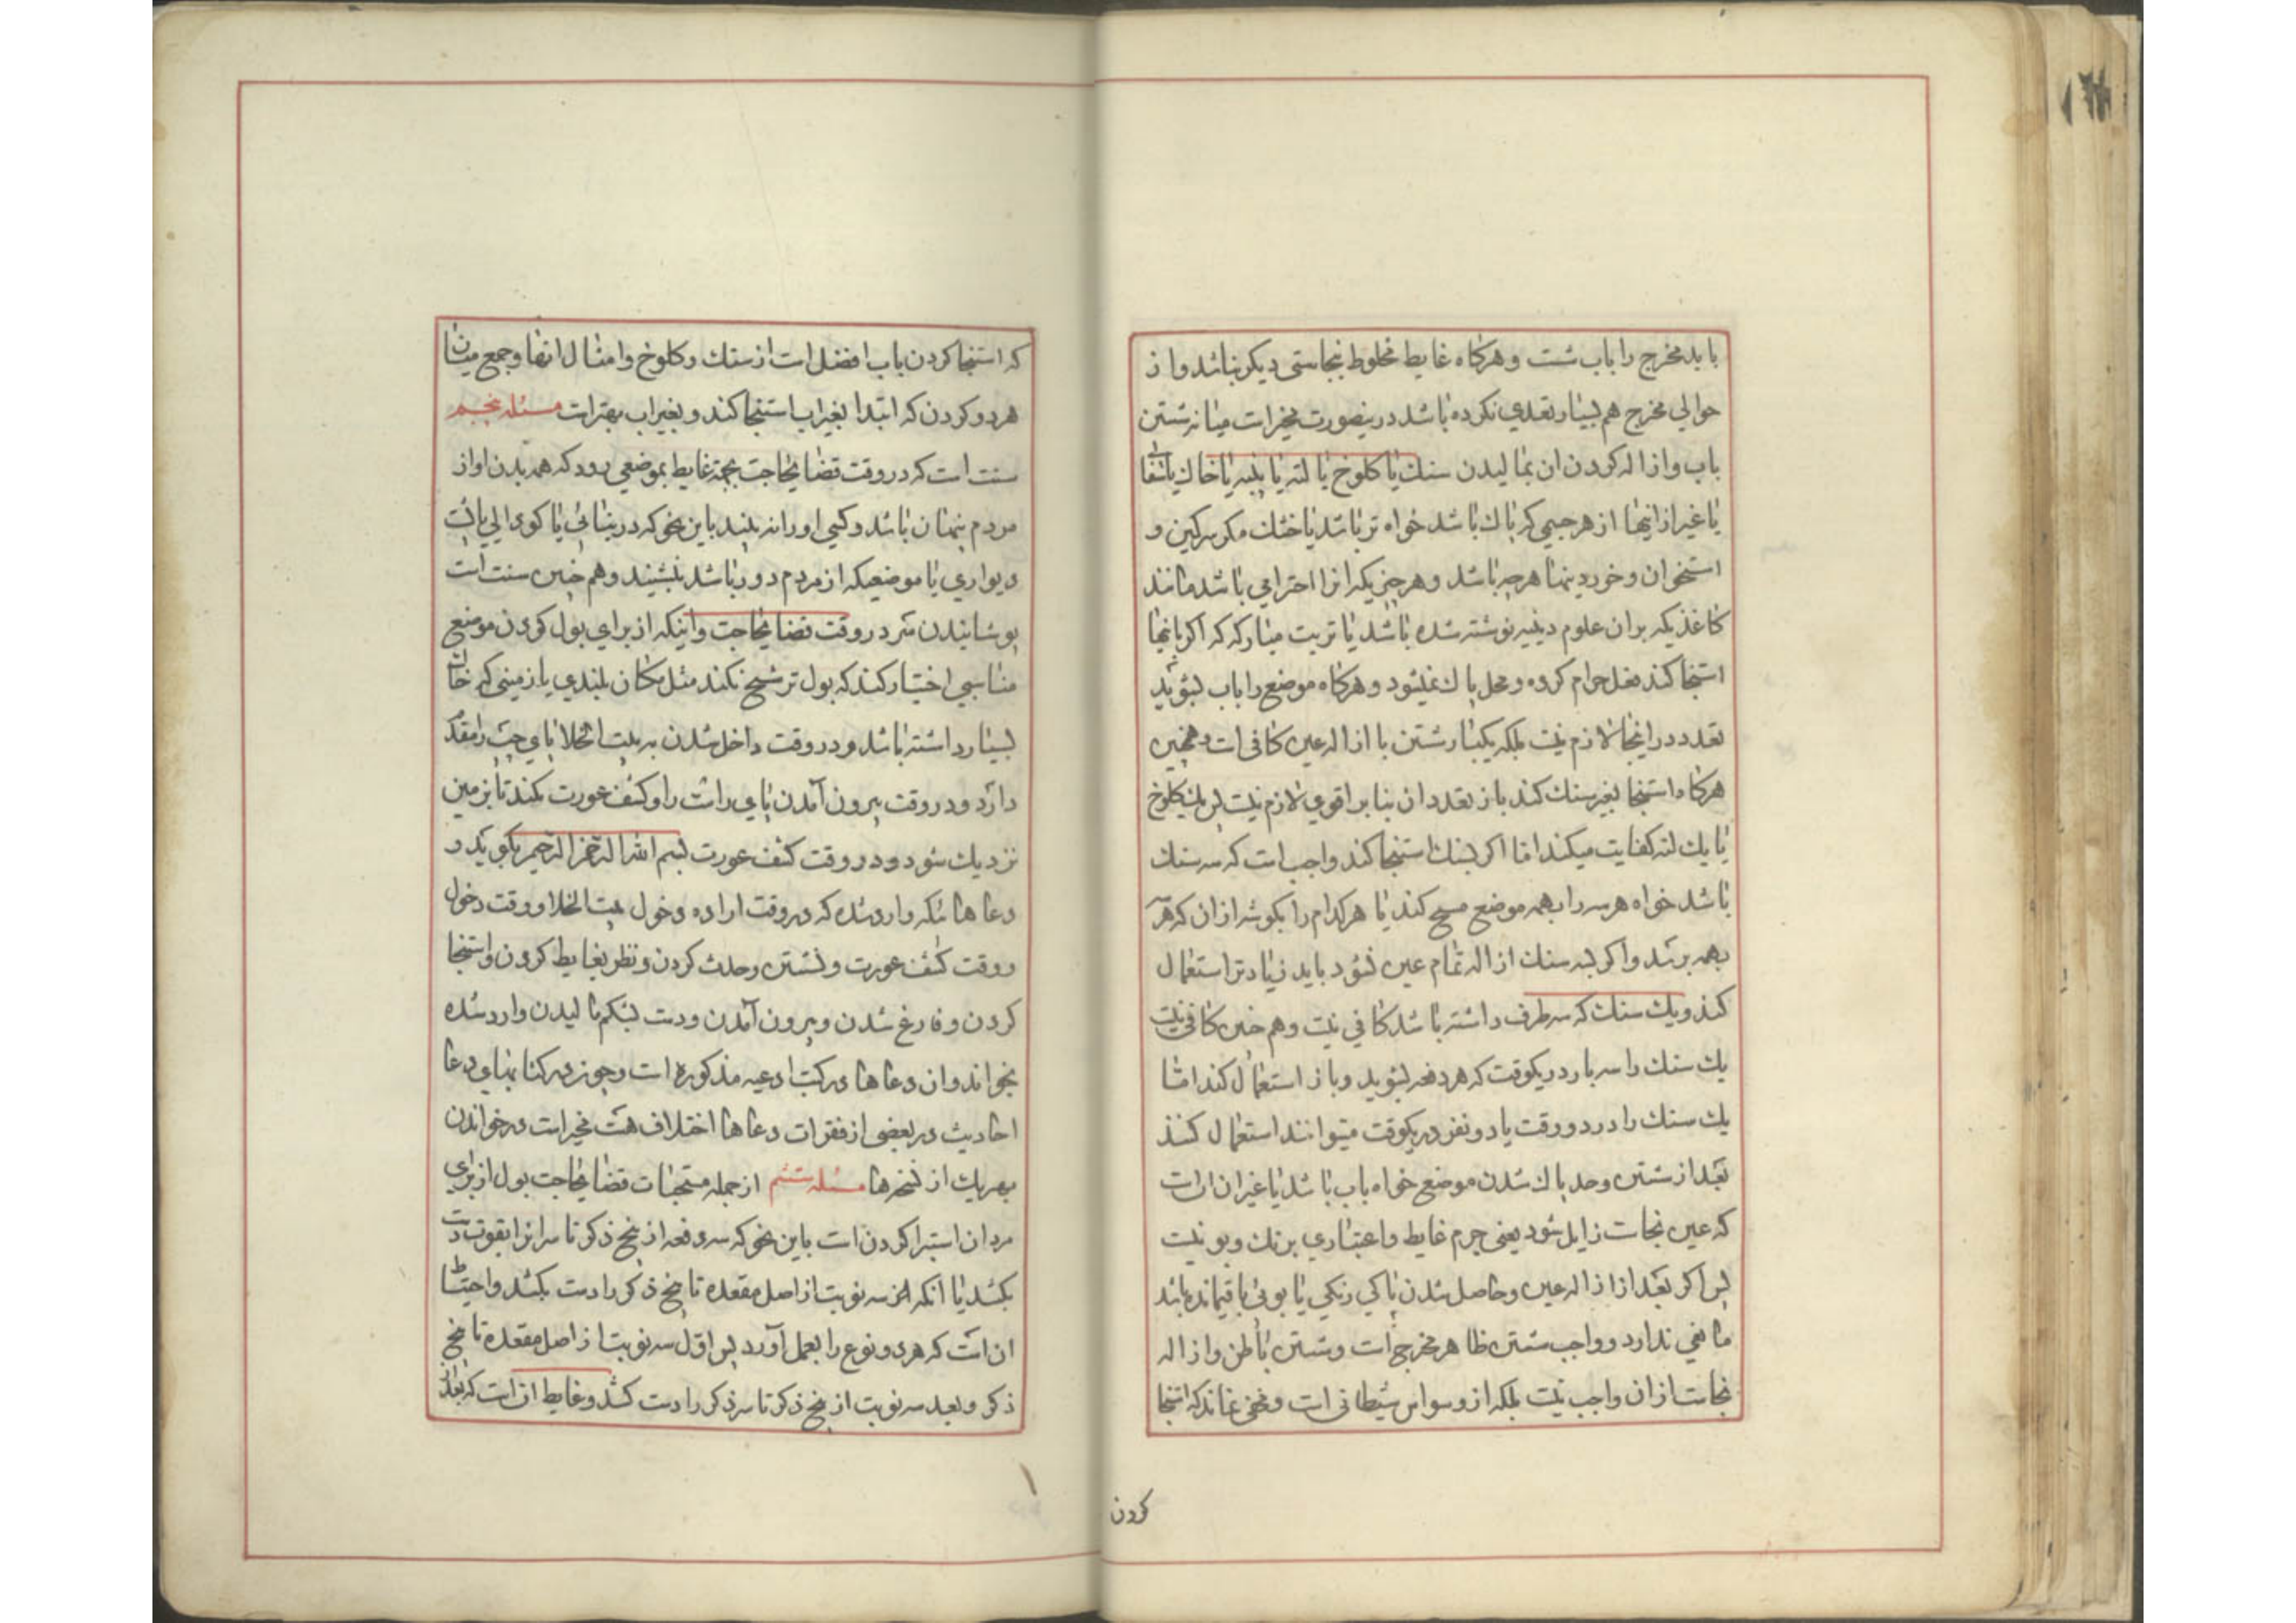 باید مخرج را باب شست و هرکاه غایط مخلوط بنجاستی دیکر نباشد و از
حوالی مخرج هم بسیار تعدی نکرده باشد درینصورت مخیر است میانه شستن
باب و ازاله کردن ان بمالیدن سنك یا کلوخ یا لته یا پنبه یا خاك یا
یا غیر از اینها از هر جسمی که پاك باشد خواه تر باشد یا خشك مکر سرکین و
استخوان و خوردینها هرچه باشد و هر چیزیکه انرا احترامی باشد مانند
کاغذیکه بران علوم دینیه نوشته شده باشد یا تربت مبارکه که اکر بانها
استنجا کند فعل حرام کرده و محل پاك نمیشود و هرکاه موضع را باب بشوید
تعدد در اینجا لازم نیست بلکه یکبار شستن با ازاله عین کافی است و همچنین
هرکاه استنجا بغیر سنك کند باز تعدد ان بنا بر اقوی لازم نیست پس یك کلوخ
یا یك لته کفایت میکند اما اکر بسنك استنجا کند واجب است که سه سنك
باشد خواه هر سه را بهمه موضع مسح کند یا هرکدام را بکوشه از ان که هر سه
بهمه برسد و اکر بسه سنك ازاله تمام عین نشود باید زیادتر استعمال
کند و یك سنك که سه طرف داشته باشد کافی نیست و هم چنین کافی نیست
یك سنك را سه بار در یکوقت که هر دفعه بشوید و باز استعمال کند اما
یك سنك را در دو وقت یا دو نفر در یکوقت میتوانند استعمال کنند
بعد از شستن و حد پاك شدن موضع خواه باب باشد یا غیر ان ان است
که عین نجاست زایل شود یعنی جرم غایط و اعتباری برنك و بو نیست
پس اکر بعد از ازاله عین و حاصل شدن پاکی رنکی یا بوئی باقیمانده باشد
مانعی ندارد و واجب شستن ظاهر مخرج است و شستن باطن و ازاله
نجاست از ان واجب نیست بلکه از وسواس شیطانی است و مخفی نماند که استنجا
کردن
که استنجا کردن باب افضل است از سنك و کلوخ و امثال انها و جمع میان
هر دو کردن که ابتدا بغیر اب استنجا کند و بغیر اب بهتر است مسئله پنجم
سنت است که در وقت قضای حاجت بجهة غایط بموضعی رود که همه بدن او از
مردم پنهان باشد و کسی او را نه بیند باین نحو که در بنائی یا کودالی یا پشت
دیواری یا موضعیکه از مردم دور باشد بنشیند و هم چنین سنت است
پوشانیدن سر در وقت قضای حاجت و اینکه از برای بول کردن موضع
مناسبی اختیار کند که بول ترشح نکند مثل مکان بلندی یا زمینی که خاك
بسیار داشته باشد و در وقت داخل شدن به بیت الخلا پای چپ را مقدم
دارد و در وقت بیرون آمدن پای راست را و کشف عورت نکند تا بزمین
نزدیك شود و در وقت کشف عورت بسم الله الرحمن الرحیم بکوید و
دعاهائیکه وارد شده که در وقت اراده دخول بیت الخلا و وقت دخول
و وقت کشف عورت و نشستن و حدث کردن و نظر بغایط کردن و استنجا
کردن و فارغ شدن و بیرون آمدن و دست بشکم مالیدن وارد شده
بخواند و ان دعاها در کتب ادعیه مذکوره است و چون در کتابهای دعا
احادیث در بعضی از فقرات دعاها اختلاف هست مخیر است در خواندن
بهر یك از نسخه‌ها مسئله ششم از جمله مستحبات قضای حاجت بول از برای
مردان استبرا کردن است باین نحو که سه دفعه از بیخ ذکر تا سر انرا بقوت دست
بکشد یا انکه سه نوبت از اصل مقعده تا بیخ ذکر را دست بکشد و احتیاط
ان است که هر دو نوع را بعمل آورد پس اول سه نوبت از اصل مقعده تا بیخ
ذکر و بعد سه نوبت از بیخ ذکر تا سر ذکر را دست کشد و غایط ان است که بعد از